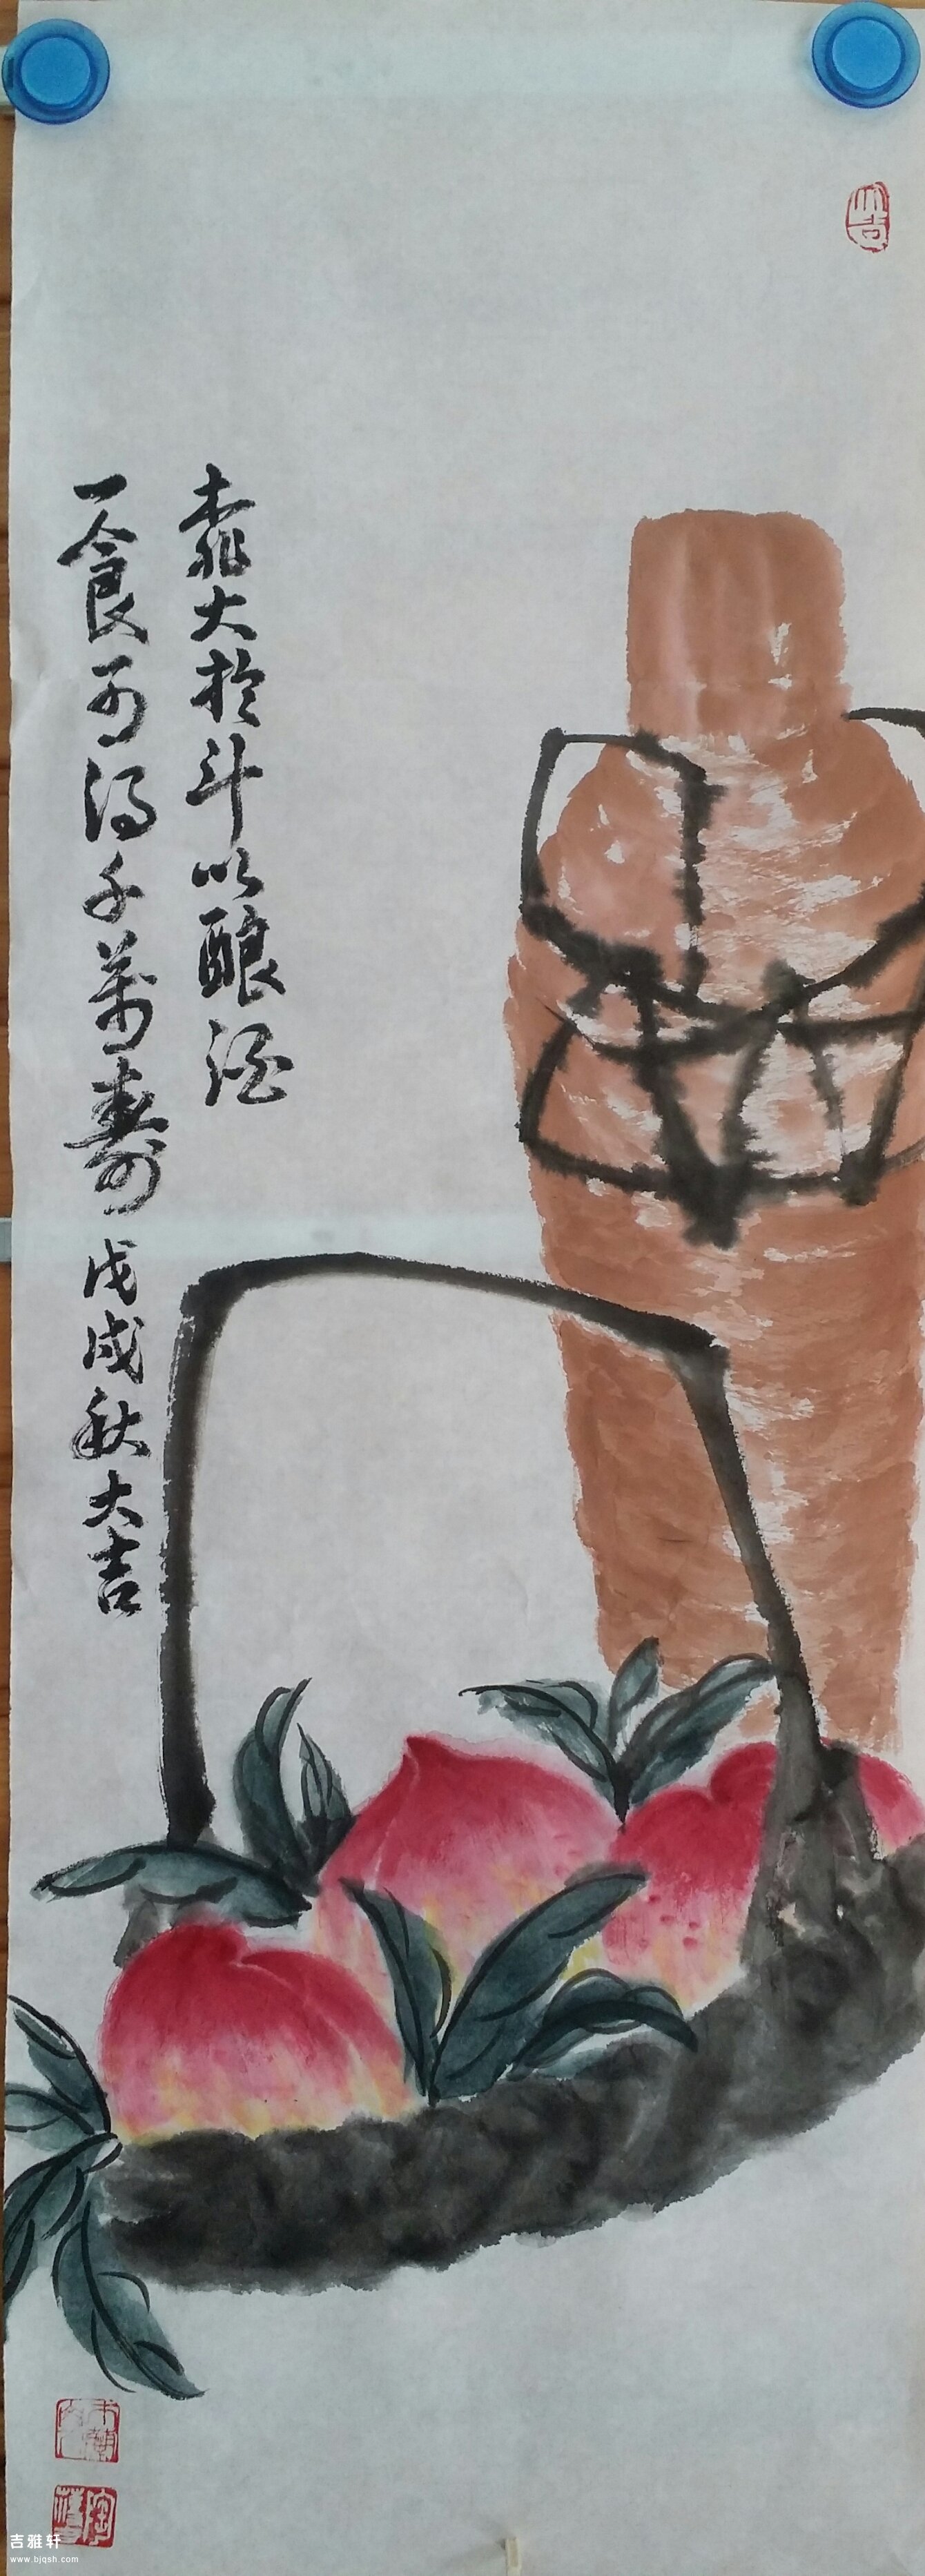 大吉
桃大於斗以酿酒
一食可得千萬壽戊戌秋大吉
吉雅轩
www.bjqsh.com